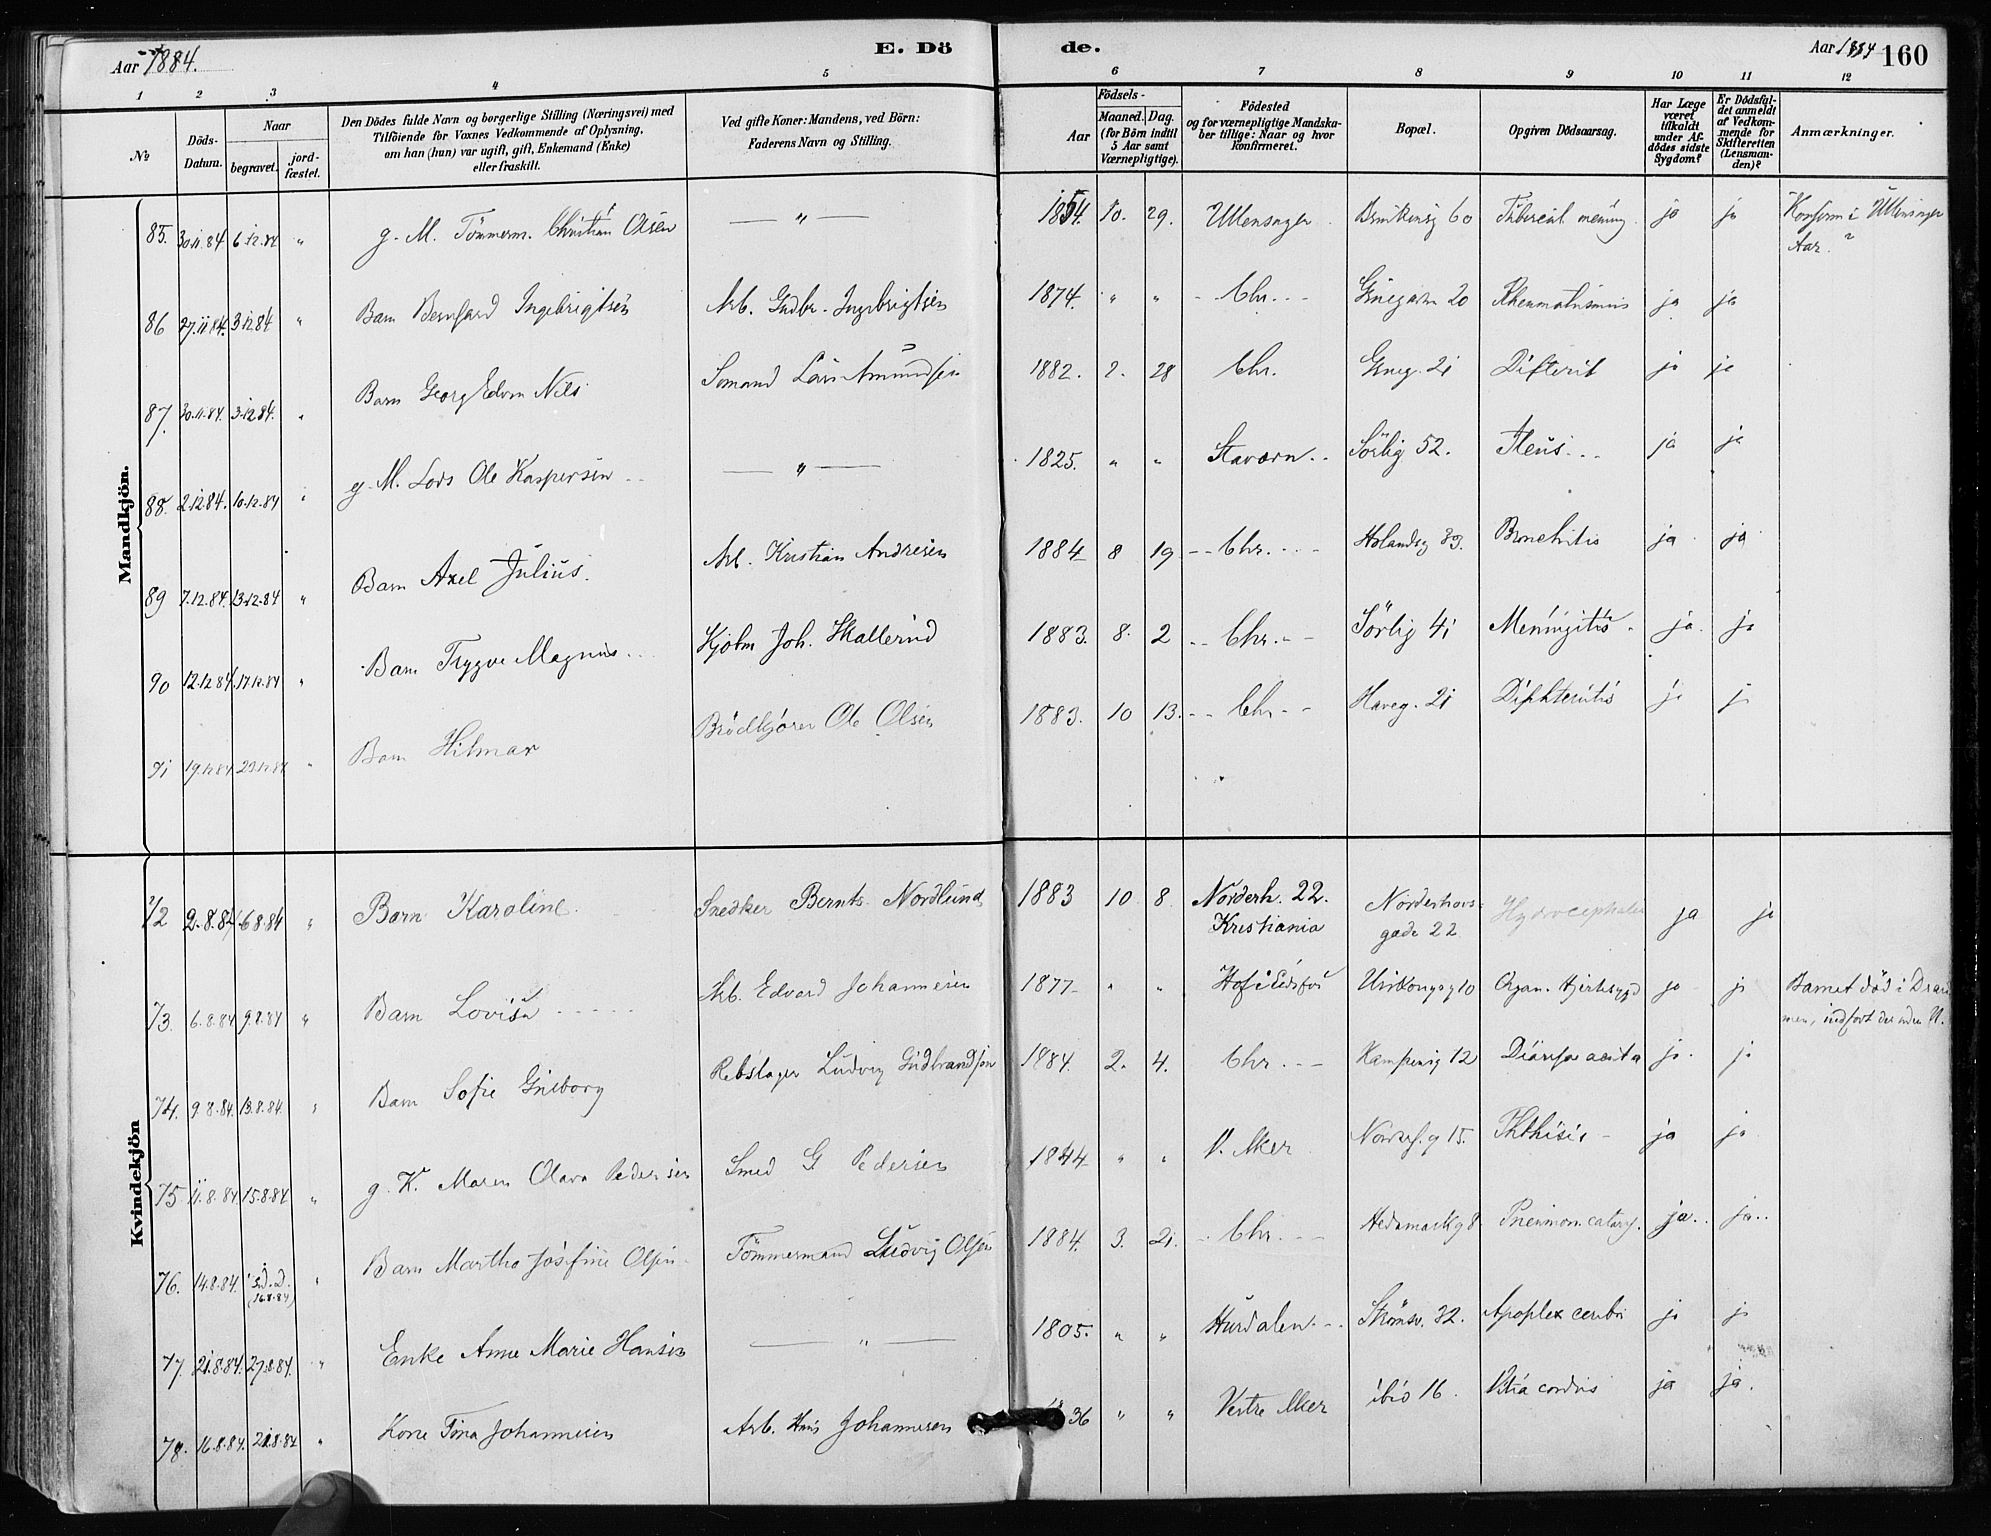 Aar 1884.
E. Dö
de.
Aar 1884 160
1 2 3 4 5 6 7 8 9 10 11 12
No
Döds-
Datum.
Naar
begravet. jord-
fæstet.
Den Dödes fulde Navn og borgerlige Stilling (Næringsvei) med
Tilföiende for Voxnes Vedkommende af Oplysning,
om han (hun) var ugift, gift, Enkemand (Enke)
eller fraskilt.
Ved gifte Koner: Mandens, ved Börn:
Faderens Navn og Stilling.
Aar
Födsels-
Maaned. Dag.
(for Börn indtil
5 Aar samt
Værnepligtige).
Födested
og for værnepligtige Mandska-
ber tillige: Naar og hvor
konfirmeret.
Bopæl.
Opgiven Dödsaarsag.
Har Læge
været
tilkaldt
under Af-
dödes sidste
Sygdom?
Er Dödsfal-
det anmeldt
af Vedkom-
mende for
Skifteretten
(Lensman-
den)?
Anmærkninger.
Mandkjön.
85. 30.11.84 6.12.84 " g. M. Tömmerm. Christian Olsen — " — 1854. 10. 29. Ullensager 60 mening. ja ja Konfirm i Ullensager
Aar. ?
86 27.11.84. 3.12.84 " Barn Bernhard Ingebrigtsen Arb. Gudbr. Ingebrigtsen 1874. " " Chr. 20 Rheumatismus ja ja
87. 30.11.84. 3.12.84. " Barn Georg Edvin Nils Sömand Lars Amundsen 1882. 2. 28 Chr. 21 Difterit ja ja
88. 2.12.84. 10.12.84 " g. M. Lods Ole Kaspersen — " — 1825. " " Staværn Sörlig 52. Ileus ja ja
89 7.12.84. 13.12.84 " Barn Axel Julius. Arb. Kristian Andresen 1884 8 19 Chr. 39. Bronchitis ja ja
90 12.12.84. 17.12.84 " Barn Trygve Magnus Kjöbm Joh. Skallerud 1883. 8. 2 Chr. Sörlig 41 Meningitis ja ja
91 19.12.84 23.12.84 " Barn Hilmar Brödkjörer Ole Olsen 1883. 10 13. Chr. Haveg. 21 Diphteritis ja j
Kvindekjön
72 2.8.84. 6.8.84 " Barn Karoline Snedker Bernts Nordlund 1883 10 8 Norderh. 22.
Kristiania Norderhovs-
gade 22 Hydrocephalus ja ja
73. 6.8.84 9.8.84 " Barn Lovisa Arb. Edvard Johannesen 1877 " " Hof i Eidsfos 10 Organ. Hjertesygd ja ja Barnet död i Dram
men, indfort der uden N.
74. 9.8.84. 13.8.84. " Barn Sofie Ginborg Rebslager Ludvig Gudbrandsen 1884. 2. 4. Chr. Kampensg 12 Diarrhe acuta ja. ja
75 11.8.84. 15.8.84 " g. K. Maren Olava Pedersen Smed G Pedersen 1844 " " V. Aker 15. Phthisis ja ja
76. 14.8.84. s.d.
(16.8.84) " Barn Martha Josefine Olsen Tömmermand Ludvig Olsen 1884. 3. 21. Chr. Hedemarkg 8 Pneumon. catarrh. ja. ja.
77. 21.8.84. 27.8.84. " Enke Anne Marie Hansen — " — 1805. " " Hurdalen Strömsv. 32. Apoplex cerebri ja ja
78. 16.8.84. 21.8.84 " Kone Tina Johannesen Arb. Hans Johannesen 36 " " Vestre Aker ibid 16. Vitia cordis ja ja.